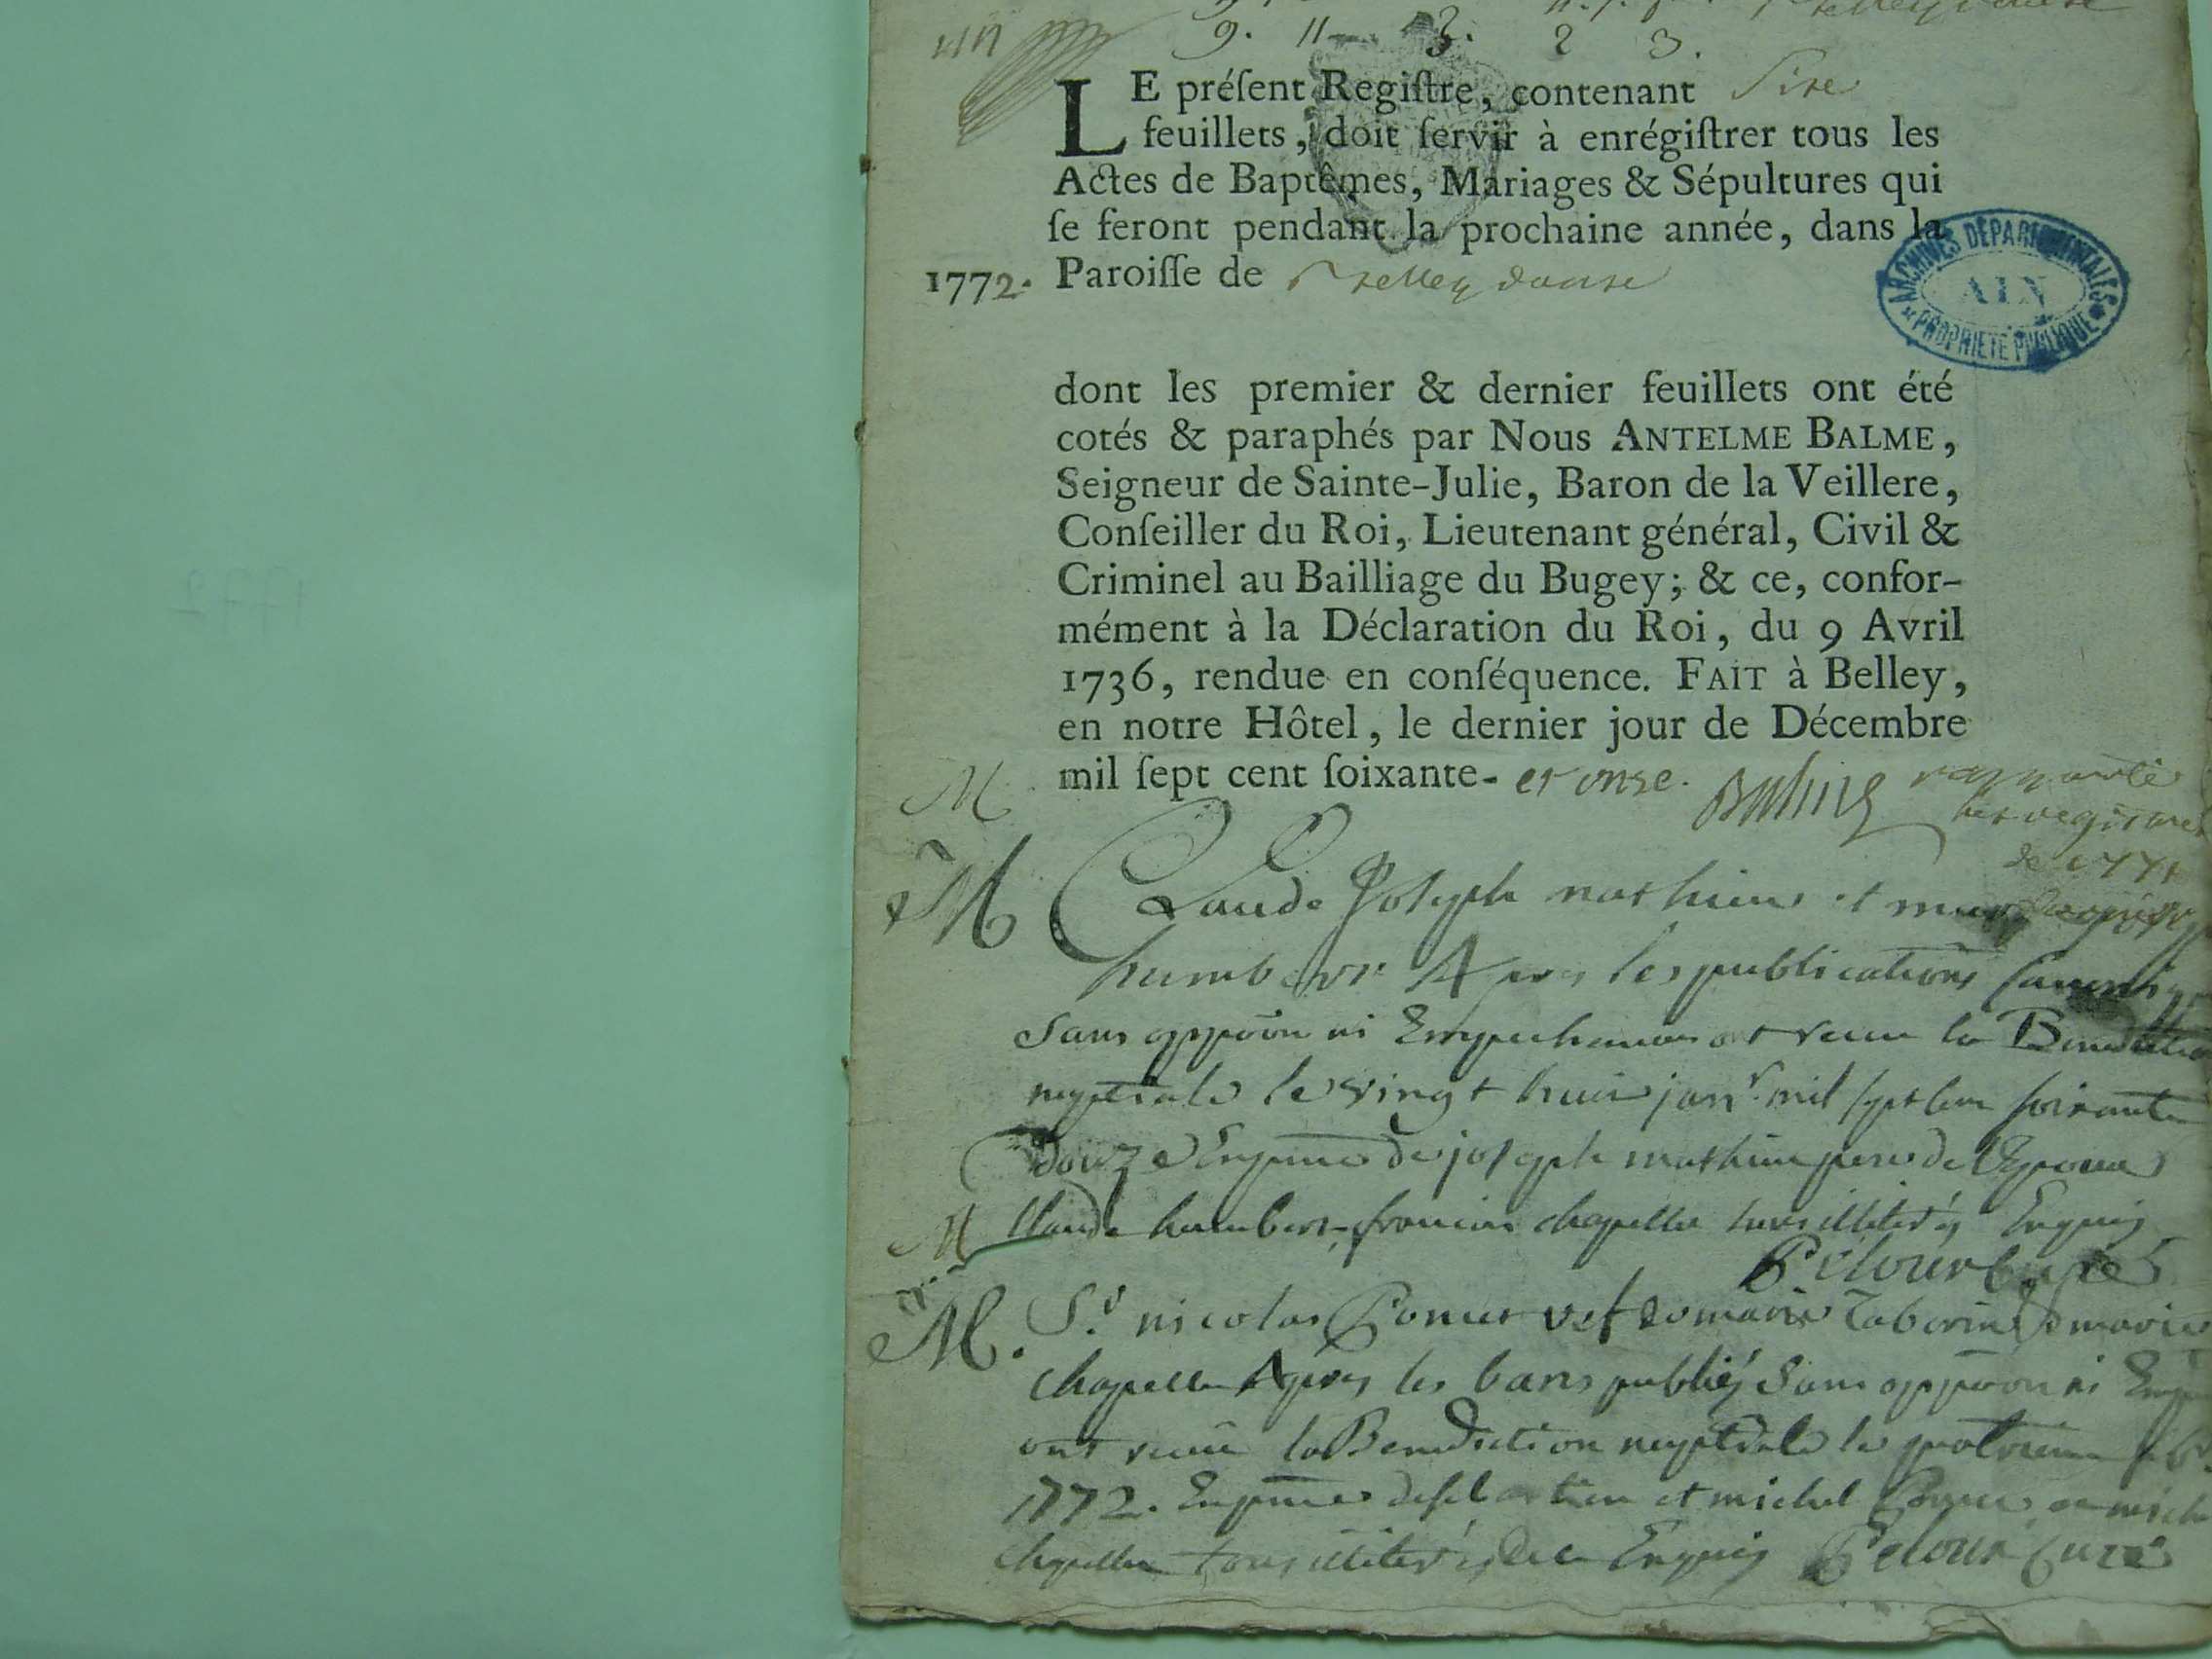 9. 11 3. 2 3.
LE préſent Regiſtre, contenant Sise
feuillets, doit ſervir à enrégiſtrer tous les
Actes de Baptêmes, Mariages & Sépultures qui
ſe feront pendant la prochaine année, dans la
1772. Paroiſſe de
ARCHIVES DÉPARTEMENTALES
AIN
PROPRIÉTÉ PUBLIQUE
dont les premier & dernier feuillets ont été
cotés & paraphés par Nous ANTELME BALME,
Seigneur de Sainte-Julie, Baron de la Veillere,
Conſeiller du Roi, Lieutenant général, Civil &
Criminel au Bailliage du Bugey; & ce, confor-
mément à la Déclaration du Roi, du 9 Avril
1736, rendue en conſéquence. FAIT à Belley,
en notre Hôtel, le dernier jour de Décembre
mil ſept cent ſoixante- et onze. Balme rapporté
les registres
de 1771
M
M Claude Joseph mathieu et
humbert Apres les publications
sans oppoon ni Empechement ont receu la Benediction
nuptiale le vingt huit janr. mil sept cent soixante
douze En pnce de joseph mathieu pere de l'Epoux
M Claude humbert françois chapelle tous illiterés Enquis
Pelour Curé
M. Sr. nicolas Ponce vef de marie Taborin & marie
chapelle Apres les bans publiés sans oppoon ni Emp
ont receu la Benediction nuptiale le quatrieme
1772. En pnce de sebastien et michel Ponce et
chapelle tous illiterés de ce Enquis Pelour Curé